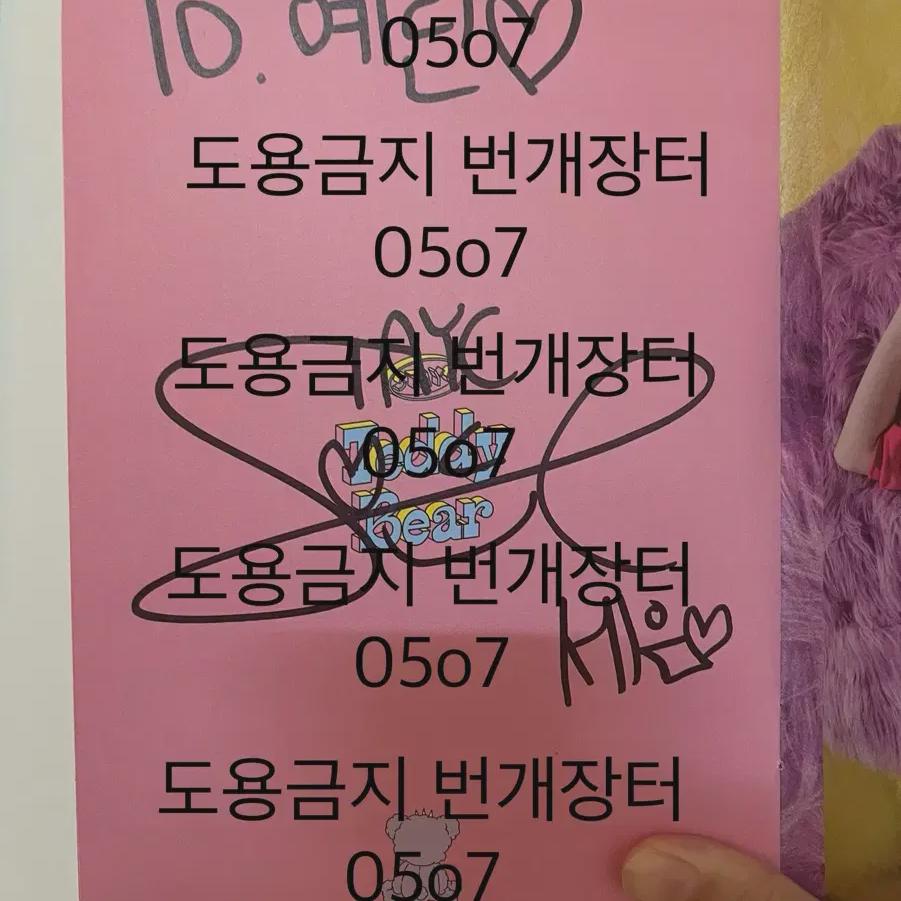 TO. 예린♡
05o7
도용금지 번개장터
05o7
STAYC
도용금지 번개장터
Teddy
05o7
Bear
도용금지 번개장터
세은♡
05o7
도용금지 번개장터
05o7